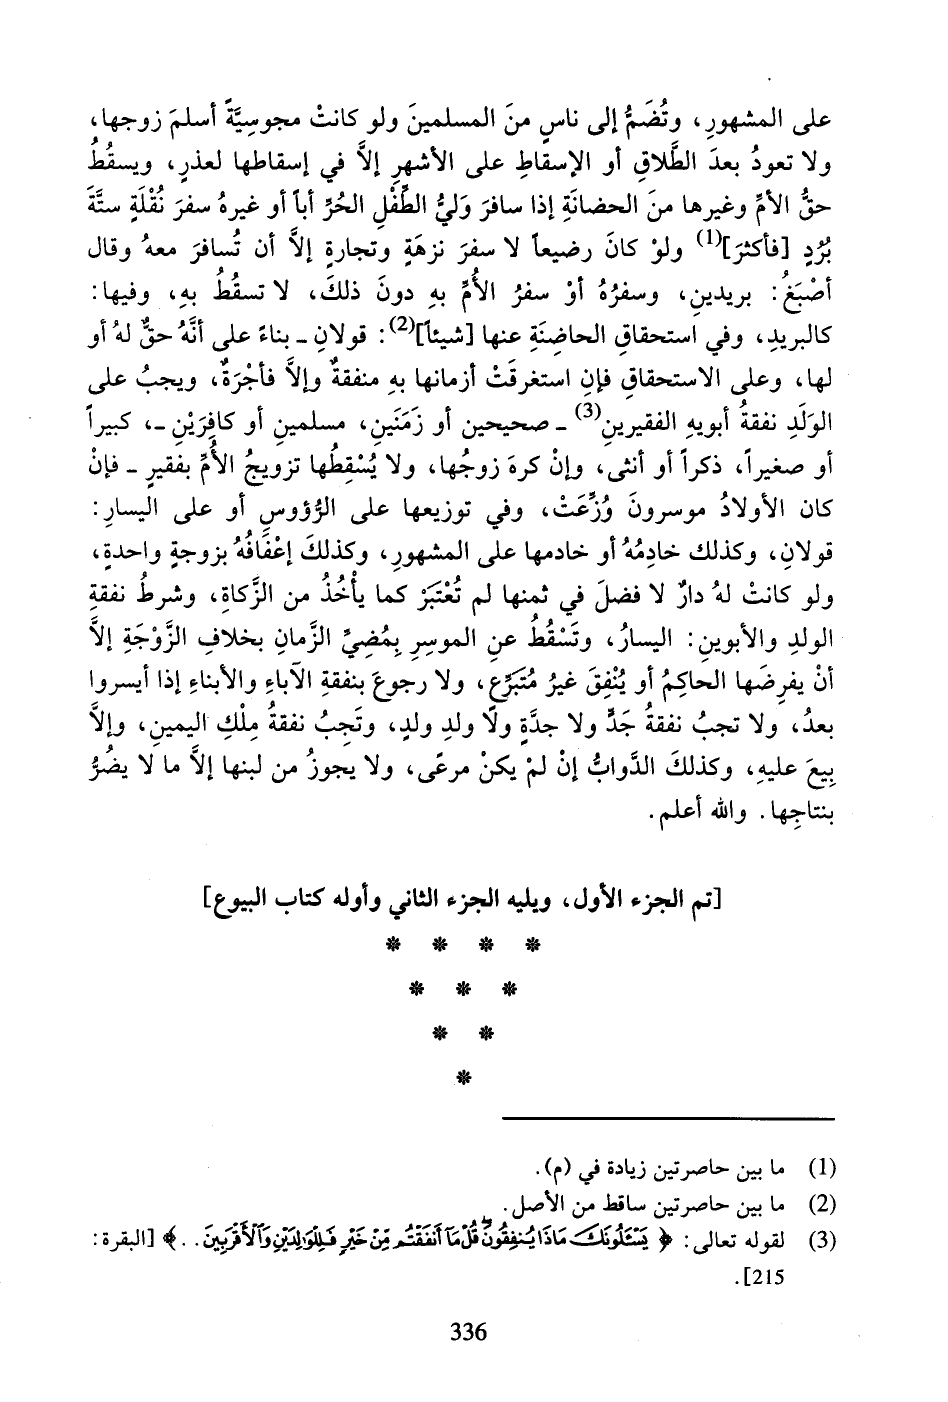 على المشهورِ، وتُضَمُّ إلى ناسٍ منَ المسلمينَ ولو كانتْ مجوسِيَّةً أسلمَ زوجها،
ولا تعودُ بعدَ الطَّلاقِ أو الإسقاطِ على الأشهرِ إلاَّ في إسقاطها لعذرٍ، ويسقطُ
حقُّ الأمِّ وغيرها منَ الحضانَةِ إذا سافرَ وَليُّ الطِّفْلِ الحُرِّ أباً أو غيرهُ سفرَ نُقْلَةٍ ستَّةَ
بُرُدٍ [فأكثرَ](1) ولوْ كانَ رضيعاً لا سفرَ نزهَةٍ وتجارةٍ إلاَّ أن تُسافرَ معهُ وقال
أصْبَغُ: بريدينِ، وسفرُهُ أوْ سفرُ الأُمِّ بهِ دونَ ذلكَ، لا تسقطُ بهِ، وفيها:
كالبريدِ، وفي استحقاقِ الحاضِنَةِ عنها [شيئاً](2): قولانِ ـ بناءً على أنَّهُ حقٌّ لهُ أو
لها، وعلى الاستحقاقِ فإنِ استغرقَتْ أزمانها بهِ منفقةٌ وإلاَّ فأجْرَةٌ، ويجبُ على
الوَلَدِ نفقةُ أبويهِ الفقيرينِ(3) ـ صحيحين أو زَمَنَينِ، مسلمينِ أو كافِرَيْنِ ـ، كبيراً
أو صغيراً، ذكراً أو أنثى، وإنْ كرهَ زوجُها، ولا يُسْقِطُها تزويجُ الأُمِّ بفقيرٍ ـ فإنْ
كان الأولادُ موسرونَ وُزِّعَتْ، وفي توزيعها على الرُّؤوسِ أو على اليسارِ:
قولانِ، وكذلك خادِمُهُ أو خادمها على المشهورِ، وكذلكَ إعْفَافُهُ بزوجةٍ واحدةٍ،
ولو كانتْ لهُ دارٌ لا فضلَ في ثمنها لم تُعْتَبَرْ كما يأْخُذُ من الزَّكاةِ، وشرطُ نفقةِ
الولدِ والأبوينِ: اليسارُ، وتَسْقُطُ عنِ الموسرِ بِمُضِيِّ الزَّمانِ بخلافِ الزَّوْجَةِ إلاَّ
أنْ يفرِضَها الحاكِمُ أو يُنْفِقَ غيرُ مُتَبَرِّعٍ، ولا رجوعَ بنفقةِ الآباءِ والأبناءِ إذا أيسروا
بعدُ، ولا تجبُ نفقةُ جَدٍّ ولا جدَّةٍ ولا ولدِ ولدٍ، وتَجبُ نفقةُ مِلْكِ اليمينِ، وإلاَّ
بِيعَ عليهِ، وكذلكَ الدَّوابُّ إنْ لمْ يكنْ مرعًى، ولا يجوزُ من لبنها إلاَّ ما لا يضُرُّ
بنتاجِها. والله أعلم.
[تم الجزء الأول، ويليه الجزء الثاني وأوله كتاب البيوع]
* * * *
* * *
* *
*
(1) ما بين حاصرتين زيادة في (م).
(2) ما بين حاصرتين ساقط من الأصل.
(3) لقوله تعالى: ﴿يَسْـَٔلُونَكَ مَاذَا يُنفِقُونَۖ قُلْ مَآ أَنفَقْتُم مِّنْ خَيْرٍ فَلِلْوَٰلِدَيْنِ وَٱلْأَقْرَبِينَ. .﴾ [البقرة:
215].
336